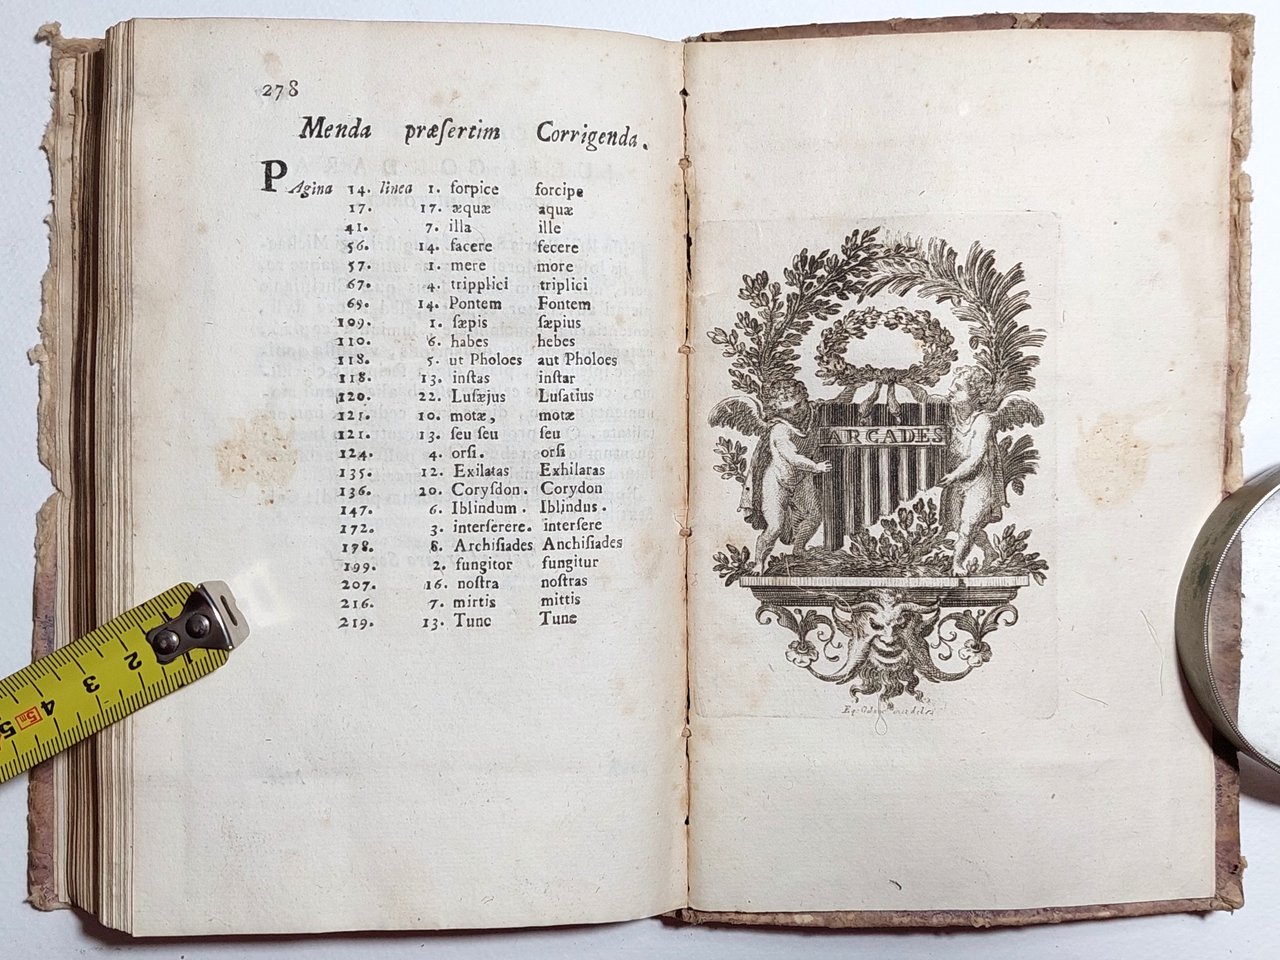 278
Menda præſertim Corrigenda.
PAgina 14. linea 1. forpice forcipe
17. 17. æquæ aquæ
41. 7. illa ille
56. 14. facere fecere
57. 1. mere more
67. 4. tripplici triplici
69. 14. Pontem Fontem
109. 1. ſæpis ſæpius
110. 6. habes hebes
118. 5. ut Pholoes aut Pholoes
118. 13. inſtas inſtar
120. 22. Luſæjus Luſatius
121. 10. motæ, motæ
121. 13. ſeu ſeu ſeu
124. 4. orſi. orſi
135. 12. Exilatas Exhilaras
136. 20. Coryſdon. Corydon
147. 6. Iblindum. Iblindus.
172. 3. interſerere. interſere
178. 8. Archiſiades Anchiſiades
199. 2. fungitor fungitur
207. 16. noſtra noſtras
216. 7. mirtis mittis
219. 13. Tunc Tune
ARCADES
Eq.
5m
5 4 3 2